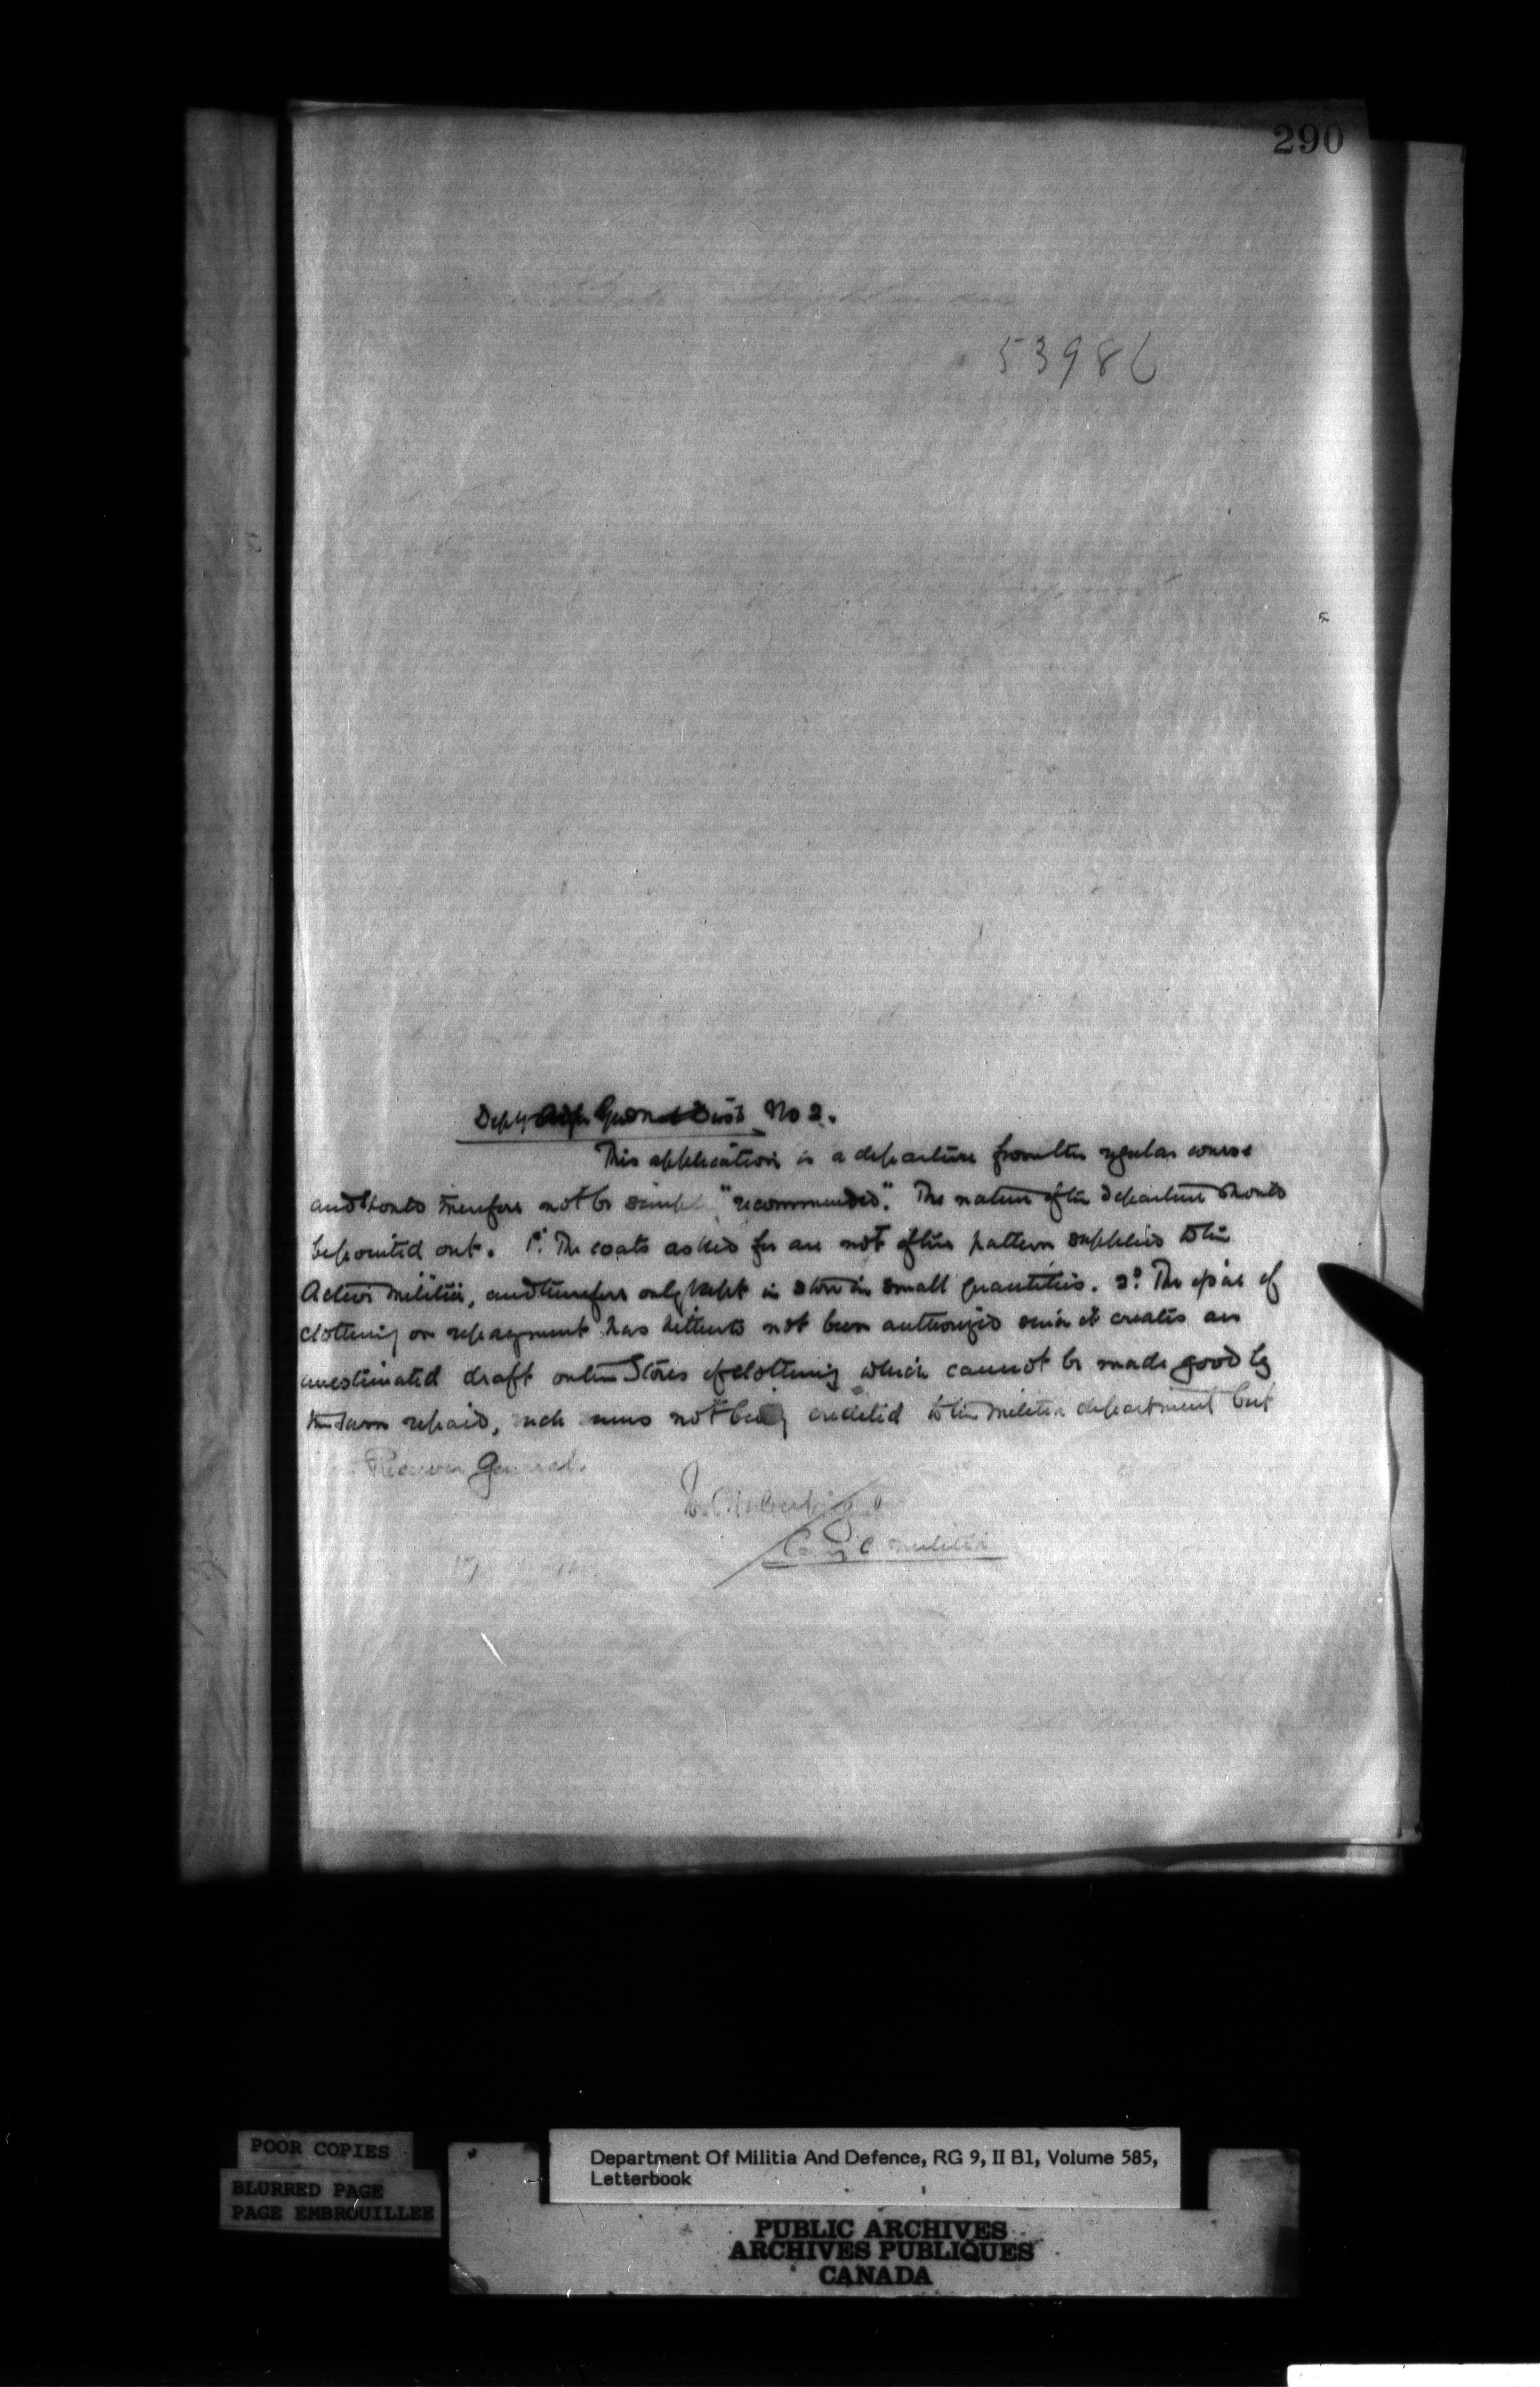 290
53986
Depy Adjt General Dist No 2.
This application is a departure from the regular course
and should therefore not be simply "recommended". The nature of the departure should
be pointed out. 1º. The coats asked for are not of the pattern supplied to the
Active Militia, and therefore only kept in store in small quantities. 2º. The issue of
clothing on repayment has hitherto not been authorized since it creates an
unestimated draft on the Stores of clothing which cannot be made good by
the sum repaid, such sums not being credited to the Militia department but
Receiver General.
C Militia
POOR COPIES
BLURRED PAGE
PAGE EMBROUILLEE
Department Of Militia And Defence, RG 9, II B1, Volume 585,
Letterbook
PUBLIC ARCHIVES
ARCHIVES PUBLIQUES
CANADA